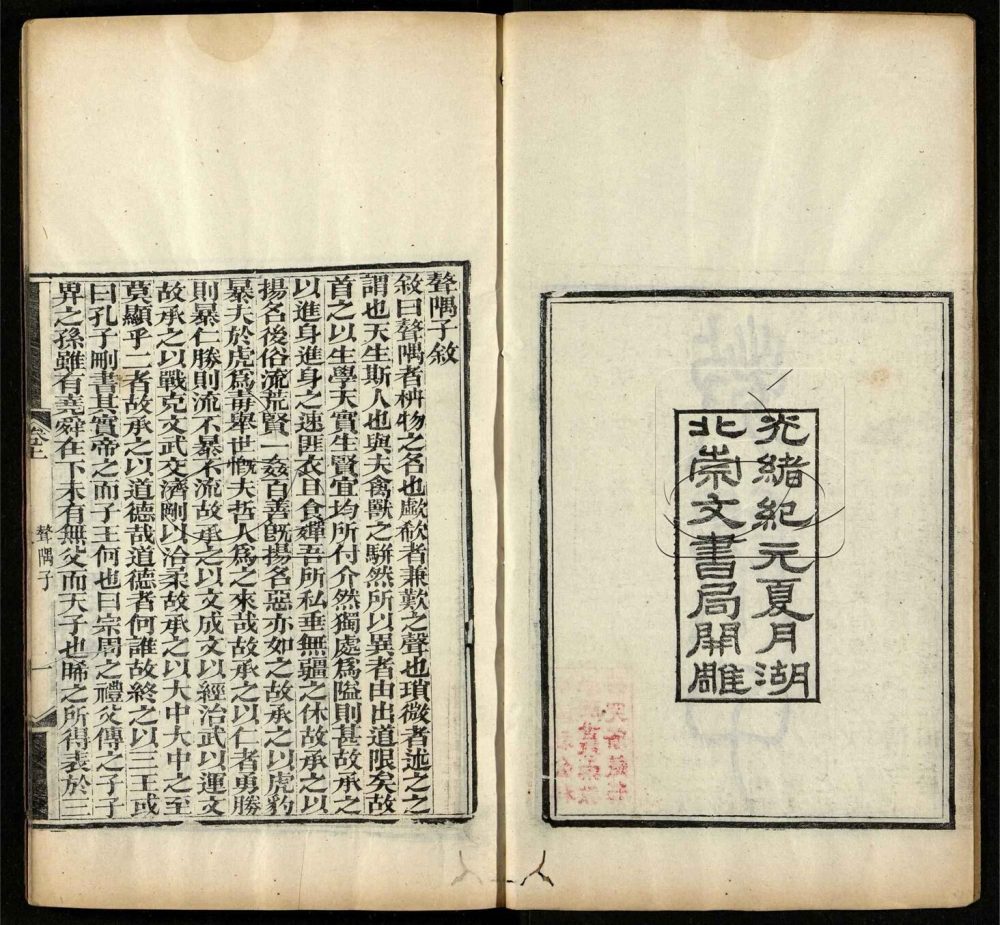 光緒紀元夏月湖
北崇文書局開雕
聱隅子敘
敘曰聱隅者枿物之名也歔欷者兼歎之聲也瑣微者述之之
謂也天生斯人也與夫禽獸之駢然所以異者由出道限矣故
首之以生學天實生賢宜均所付介然獨處為隘則甚故承之
以進身進身之速匪衣且食殫吾所私垂無疆之休故承之以
揚名後俗流荒賢一姦百善旣揚名惡亦如之故承之以虎豹
暴夫於虎爲毒舉世慨夫哲人爲之來哉故承之以仁者勇勝
則暴仁勝則流不暴不流故承之以文成文以經治武以運文
故承之以戰克文武交濟剛以治柔故承之以大中大中之至
莫顯乎二者故承之以道德哉道德者何誰故終之以三王或
曰孔子刪書其實帝之而子王何也曰宗周之禮父傳之子子
界之孫雖有堯舜在下未有無父而天子也晞之所得表於三
卷上
聱隅子
一